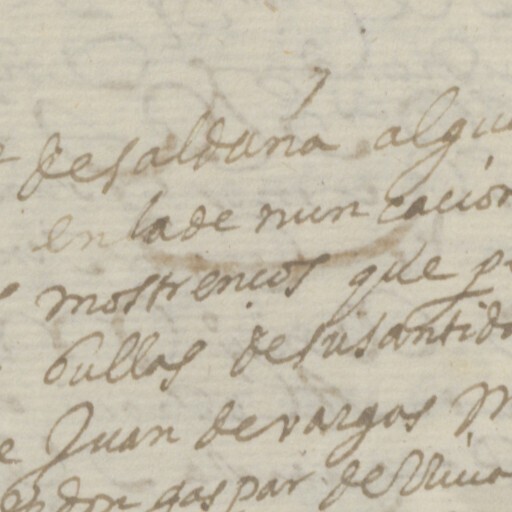 de saldaña algu
en la de nuncacion
mostrencos que p
bullas de su santida
Juan de vargas
don gaspar de